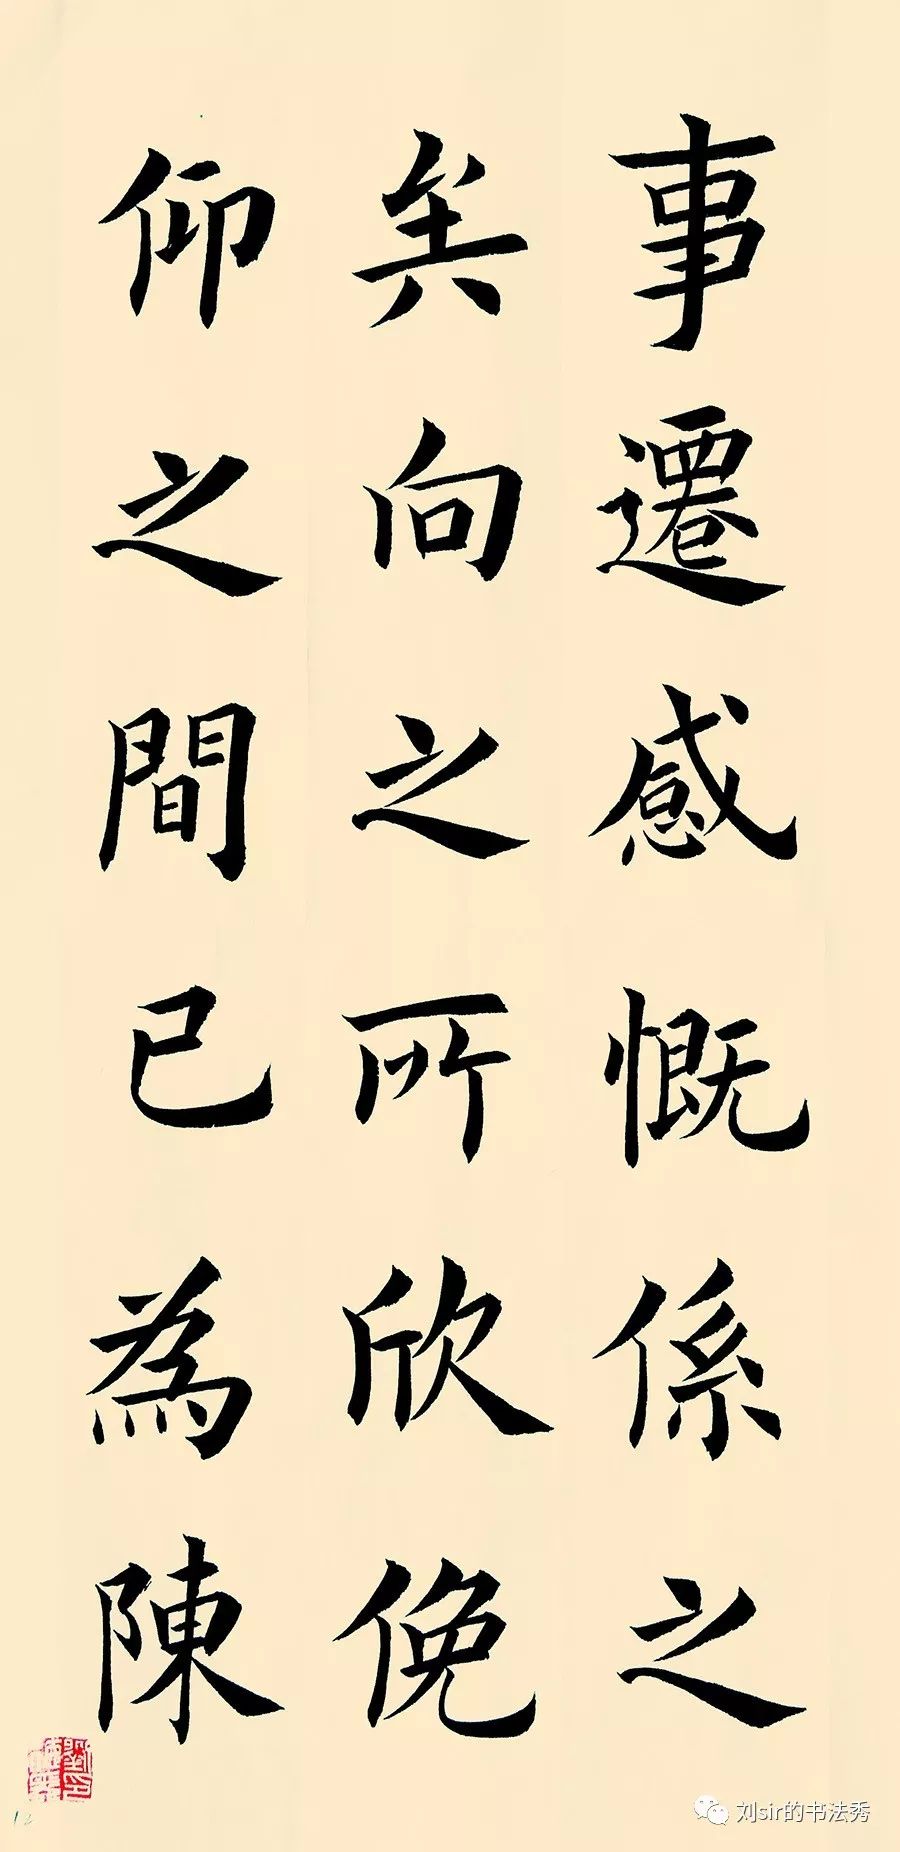 事遷感慨係之
矣向之所欣俛
仰之間已為陳
12
刘sir的书法秀